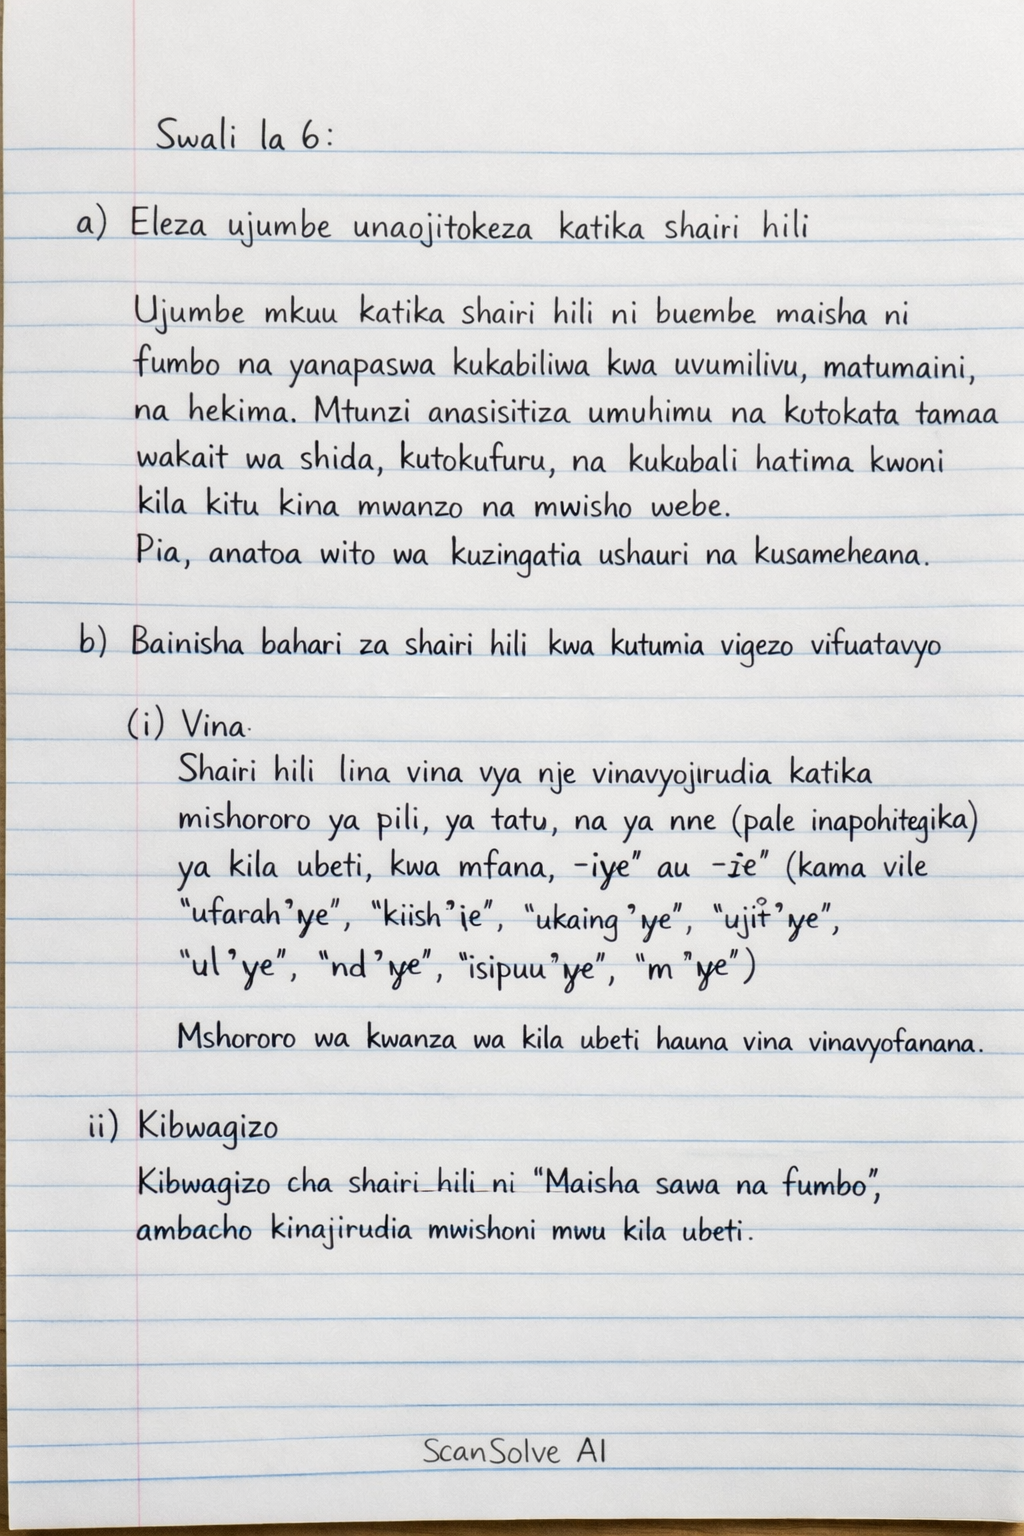 Swali la 6:
a) Eleza ujumbe unaojitokeza katika shairi hili
Ujumbe mkuu katika shairi hili ni buembe maisha ni
fumbo na yanapaswa kukabiliwa kwa uvumilivu, matumaini,
na hekima. Mtunzi anasisitiza umuhimu na kutokata tamaa
wakait wa shida, kutokufuru, na kukubali hatima kwoni
kila kitu kina mwanzo na mwisho webe.
Pia, anatoa wito wa kuzingatia ushauri na kusameheana.
b) Bainisha bahari za shairi hili kwa kutumia vigezo vifuatavyo
(i) Vina.
Shairi hili lina vina vya nje vinavyojirudia katika
mishororo ya pili, ya tatu, na ya nne (pale inapohitegika)
ya kila ubeti, kwa mfana, -iye" au -ie" (kama vile
"ufarah'iye", "kiish'ie", "ukaing'iye", "ujit'iye",
"ul'ye", "nd'iye", "isipuu'iye", "m"iye")
Mshororo wa kwanza wa kila ubeti hauna vina vinavyofanana.
ii) Kibwagizo
Kibwagizo cha shairi hili ni "Maisha sawa na fumbo",
ambacho kinajirudia mwishoni mwu kila ubeti.
ScanSolve AI